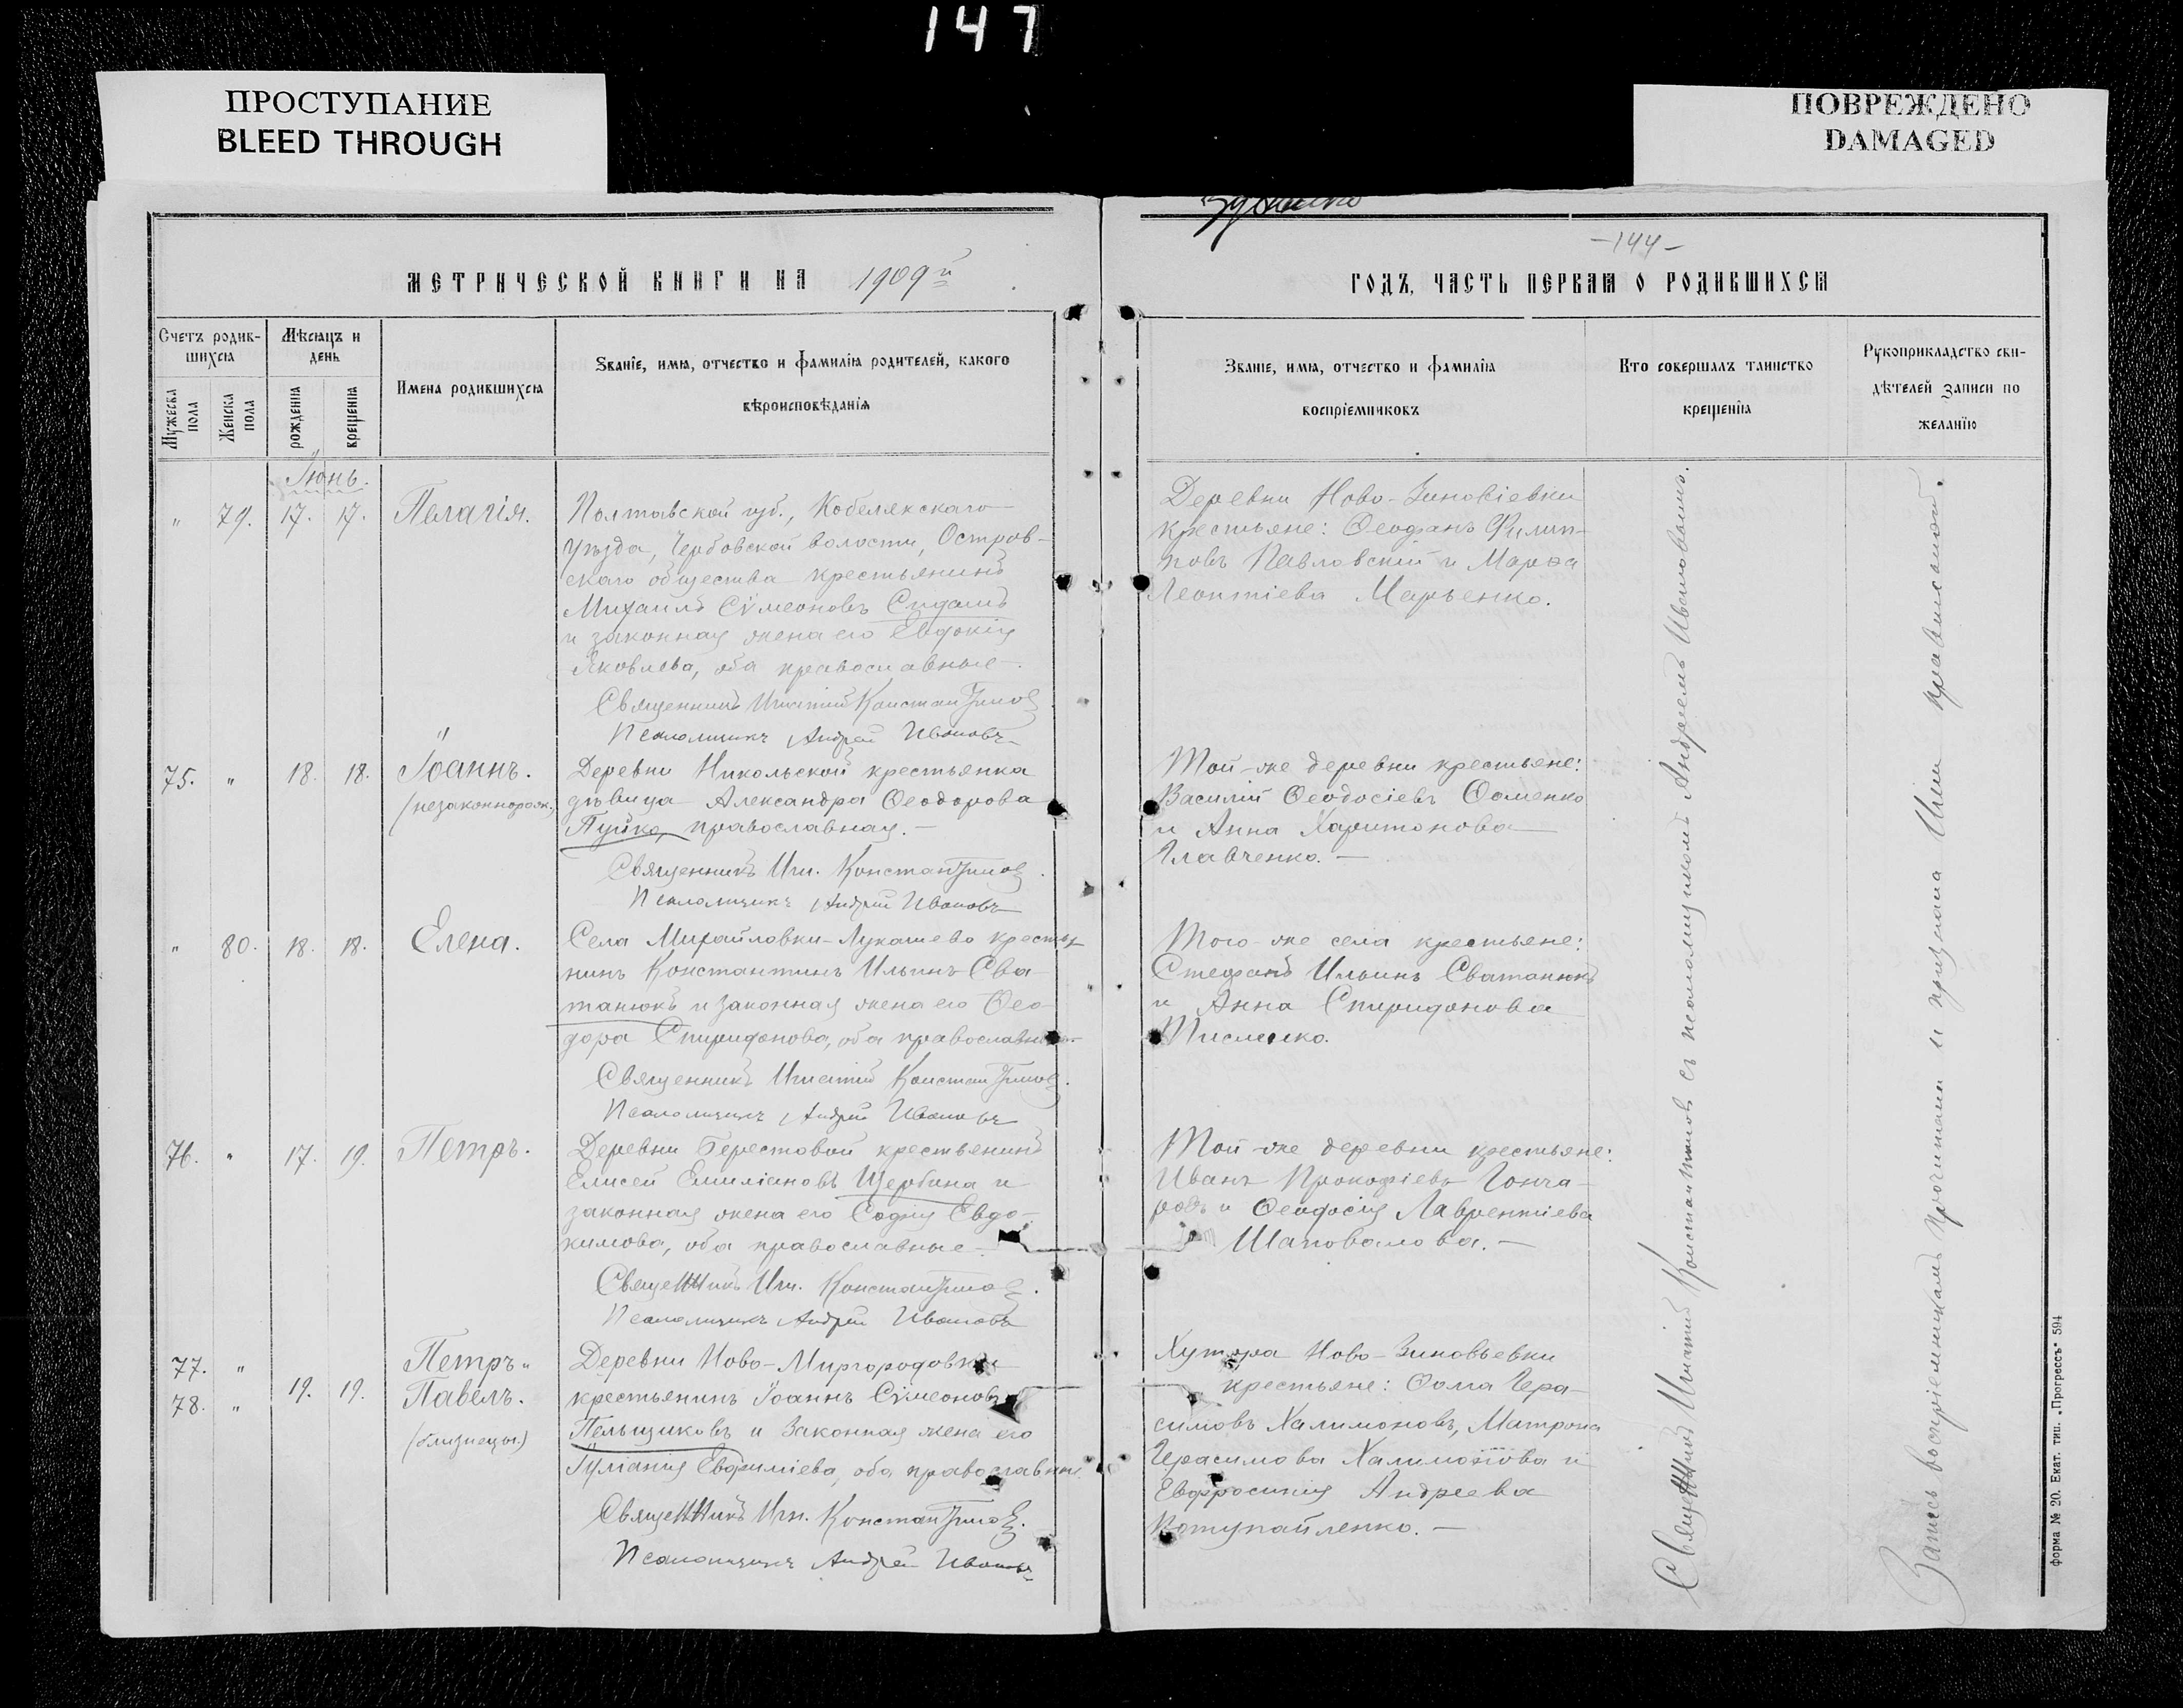 147
ПРОСТУПАНИЕ
BLEED THROUGH
ПОВРЕЖДЕНО
DAMAGED
МЕТРИЧЕСКОЙ КНИГИ НА 1909й
Счетъ родившихсѧ
Мѣсѧцъ и день
Имена родившихсѧ
Званіе, имѧ, отчество и фамиліѧ родителей, какого
вѣроисповѣданіѧ
Мужеска пола
Женска пола
рожденіѧ
крещеніѧ
Іюнь.
" 79. 17. 17. Пелагія.
Полтавской губ., Кобелякскаго
уѣзда, Чербовской волости, Остров-
скаго общества крестьянинъ
Михаилъ Сѵмеоновъ
и законная жена его Евдокія
Яковлева, оба православные.
Священникъ Игнатій Константиновъ
Псаломщикъ Андрей Ивановъ
75. " 18. 18. Іоаннъ.
(незаконнорож.)
Деревни Никольской крестьянка
дѣвица Александра Ѳеодорова
Пуйко, православная. —
Священникъ Игн. Константиновъ.
Псаломщикъ Андрей Ивановъ
" 80. 18. 18. Елена.
Села Михайловки-Лукашево крестья
нинъ Константинъ Ильинъ Сва-
танюкъ и законная жена его Ѳео-
дора Спиридонова, оба православные.
Священникъ Игнатій Константиновъ.
Псаломщикъ Андрей Ивановъ
76. " 17. 19. Петръ.
Деревни Берестовой крестьянинъ
Елисей Емиліановъ Щербина и
законная жена его Софія Евдо-
кимова, оба православные.
Священникъ Игн. Константиновъ.
Псаломщикъ Андрей Ивановъ
77. " Петръ "
78. " 19. 19. Павелъ.
(близнецы.)
Деревни Ново-Миргородовки
крестьянинъ Іоаннъ Сѵмеоновъ
Пельщиковъ и законная жена его
Іуліанія Евфиміева, оба православны.
Священникъ Игн. Константиновъ.
Псаломщикъ Андрей Ивановъ
-144-
ГОДЪ, ЧАСТЬ ПЕРВАѦ О РОДИВШИХСѦ
Званіе, имѧ, отчество и фамиліѧ
воспріемниковъ
Кто совершалъ таинство
крещеніѧ
Рукоприкладство сви-
дѣтелей записи по
желанію
Деревни Ново-Зиновіевки
крестьяне: Ѳеофанъ Филип-
повъ Павловскій и Марѳа
Леонтіева Марьенко.
Той-же деревни крестьяне:
Василій Ѳеодосіевъ Ѳоменко
и Анна Харитонова
Главченко. —
Того-же села крестьяне:
Стефанъ Ильинъ Сватанюкъ
и Анна Спиридонова
Письменко.
Той-же деревни крестьяне:
Иванъ Прокофіевъ Гонча-
ровъ и Ѳеодосія Лаврентіева
Шаповалова. —
Хутора Ново-Зиновьевки
крестьяне: Ѳома Гера-
симовъ Халимоновъ, Матрона
Герасимова Халимонова и
Евфросинія Андреева
Котупайленко. —
Священникъ Игнатій Константиновъ съ псаломщикомъ Андреемъ Ивановымъ.
Запись воспріемникамъ прочитана и признана ими правильной.
Форма № 20. Екат. тип. „Прогрессъ" 594